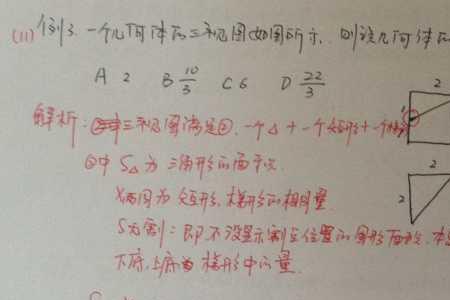 (11) 例3. 一个几何体的三视图如图所示, 则该几何体的
A 2 B 10/3 C 6 D 22/3
2
解析: ①三视图满足②, 一个△ + 一个矩形 + 一个梯
②中 S△ 为 三角形的面积.
2
2
为 矩形, 梯形的相同量.
S为割: 即不设显示割三位置的图形面积, 本
下底, 上底为 梯形中的量.